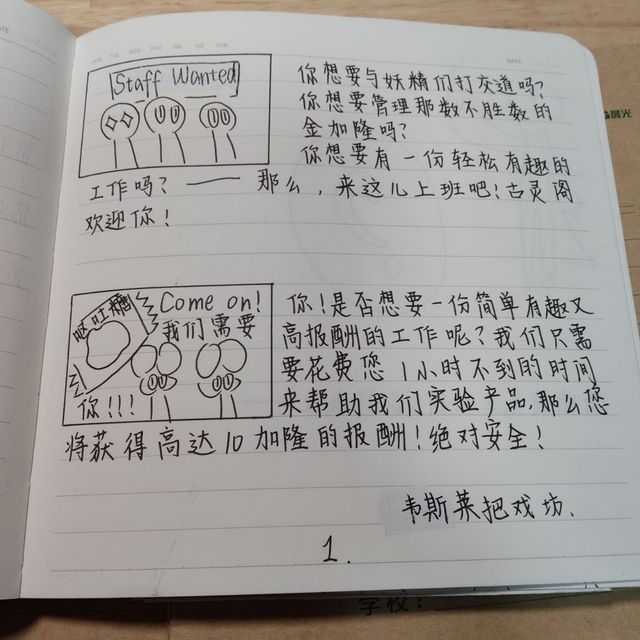 MON TUE WED THU FRI SAT SUN
DATE
Staff Wanted
你想要与妖精们打交道吗?
你想要管理那数不胜数的
金加隆吗?
你想要有一份轻松有趣的
工作吗? —— 那么,来这儿上班吧!古灵阁
欢迎你!
呕吐糖
Come on!
我们需要
你!!!
你!是否想要一份简单有趣又
高报酬的工作呢?我们只需
要花费您1小时不到的时间
来帮助我们实验产品,那么您
将获得高达10加隆的报酬!绝对安全!
韦斯莱把戏坊.
1.
晨光
学校: